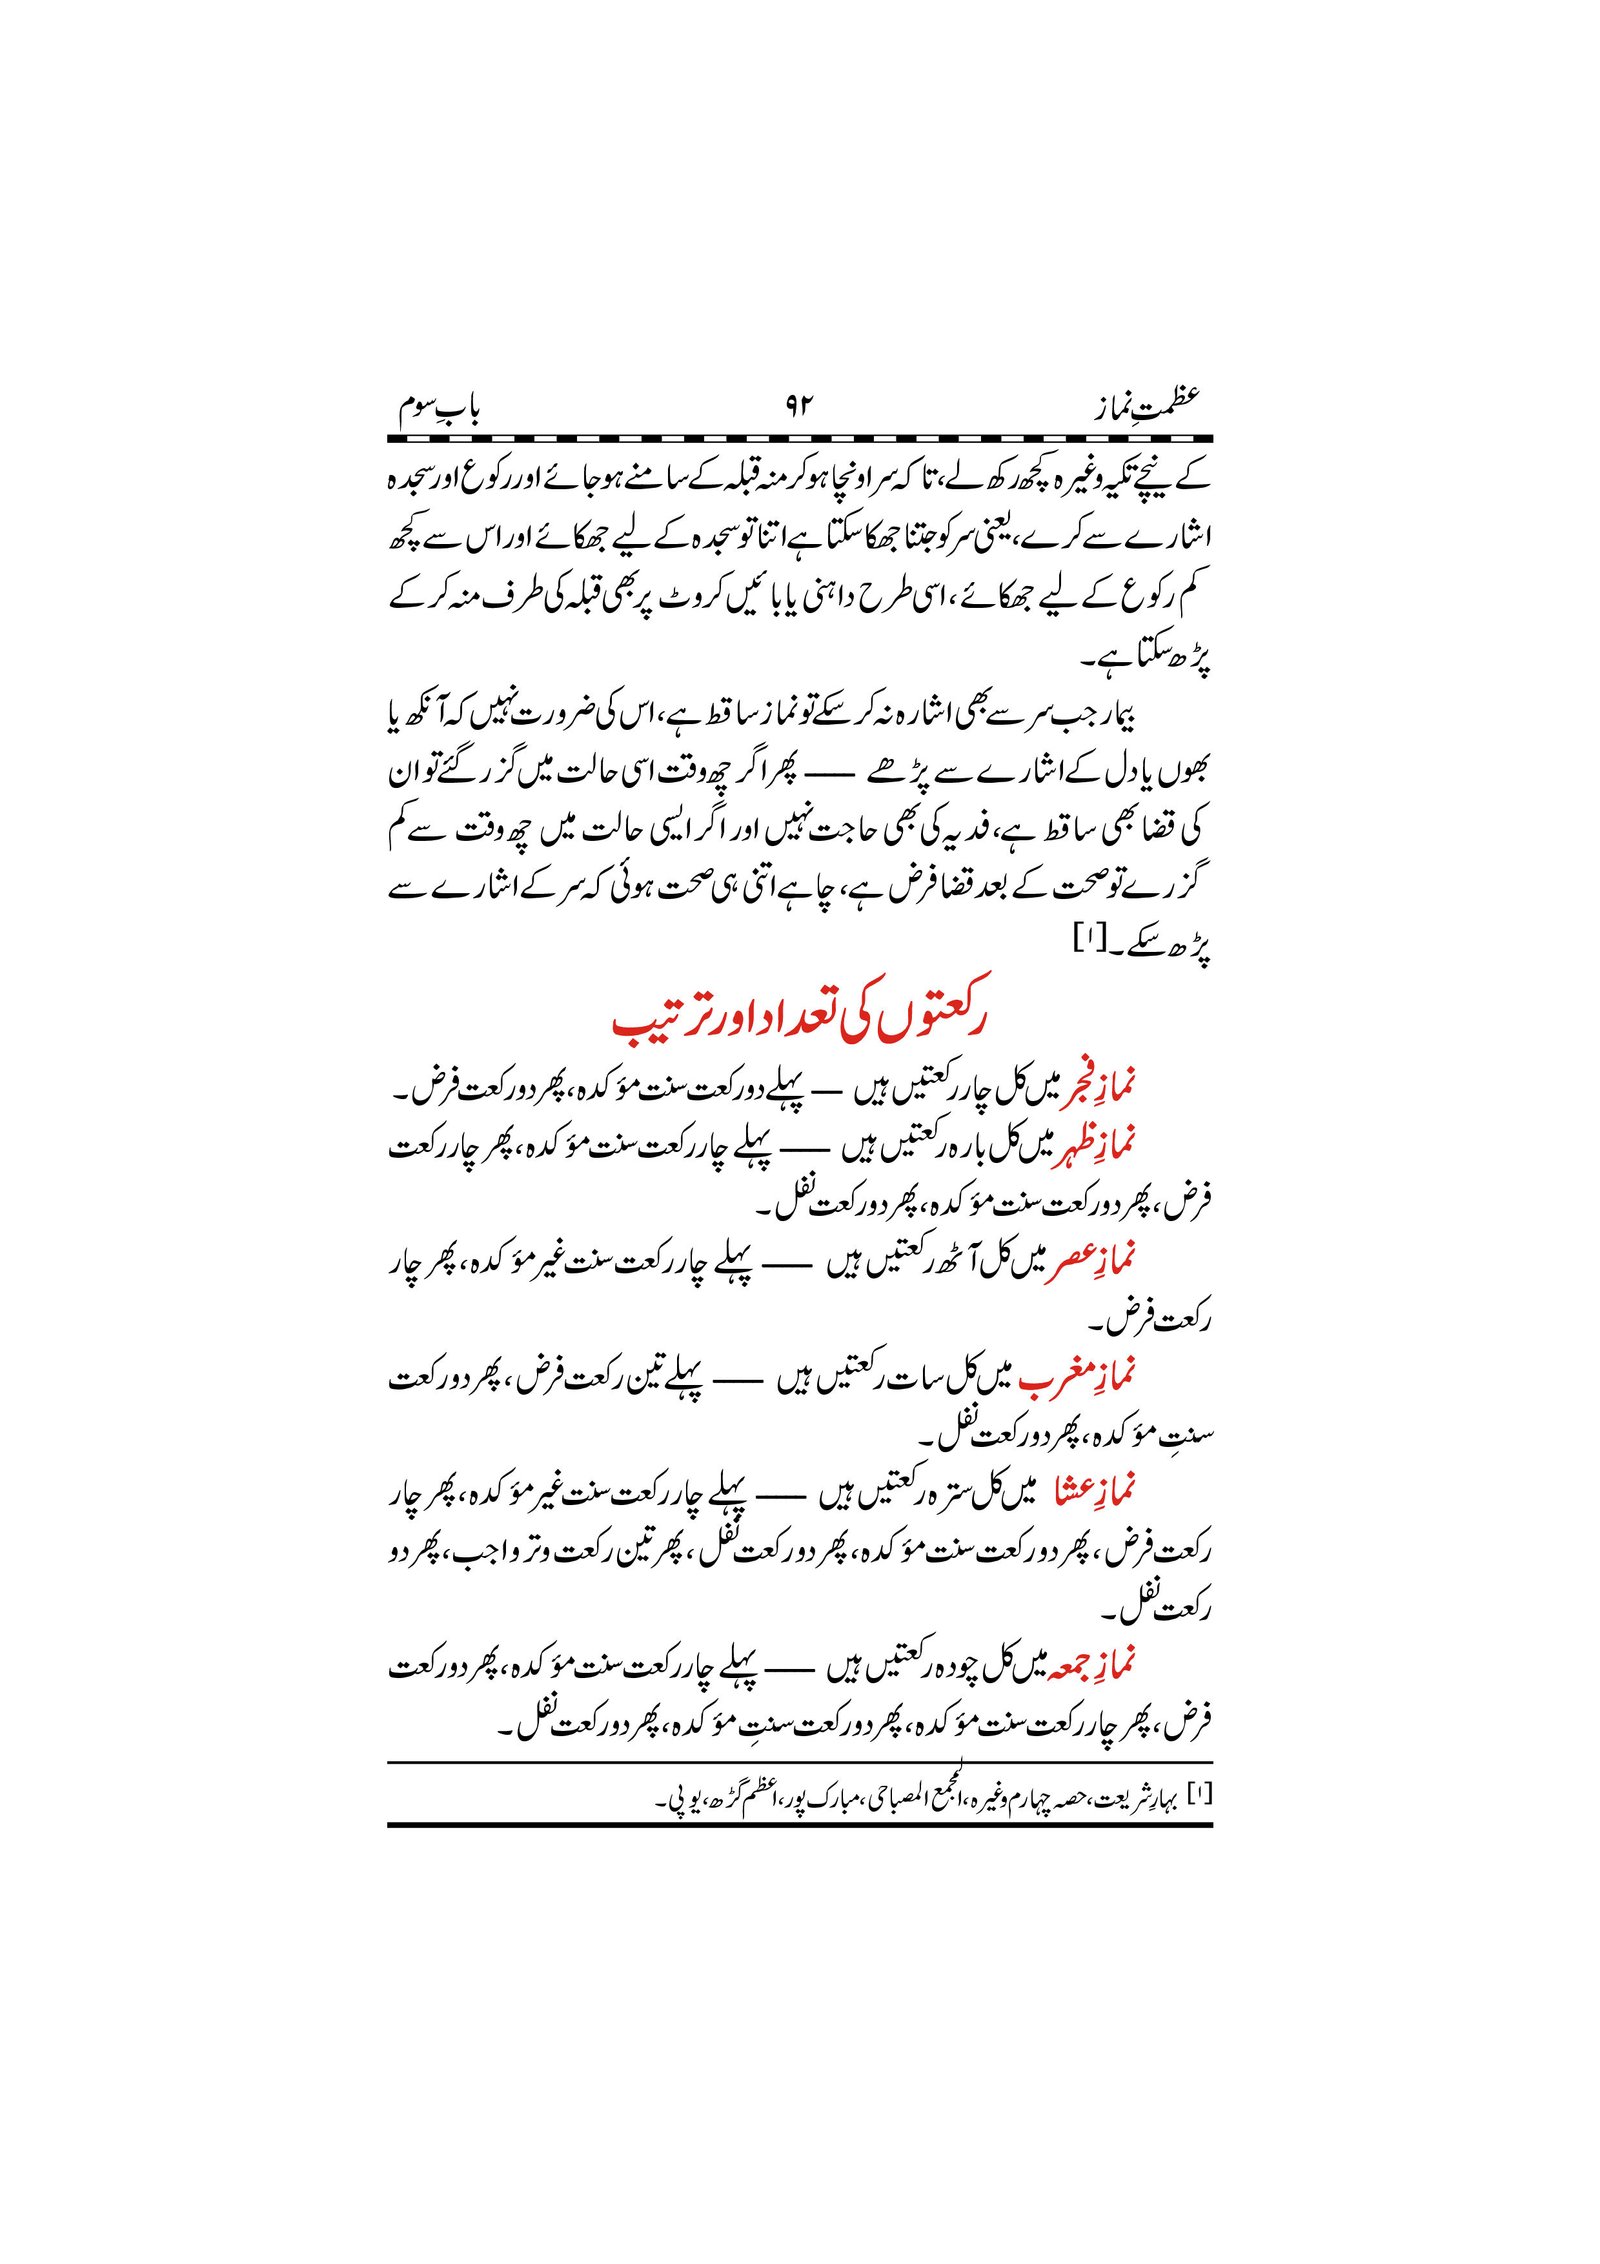 عظمتِ نماز ۹۲ بابِ سوم
کے نیچے تکیہ وغیرہ کچھ رکھ لے، تا کہ سر اونچا ہو کر منہ قبلہ کے سامنے ہو جائے اور رکوع اور سجدہ
اشارے سے کرے، یعنی سر کو جتنا جھکا سکتا ہے اتنا تو سجدہ کے لیے جھکائے اور اس سے کچھ
کم رکوع کے لیے جھکائے، اسی طرح داہنی یا بائیں کروٹ پر بھی قبلہ کی طرف منہ کر کے
پڑھ سکتا ہے۔
بیمار جب سر سے بھی اشارہ نہ کر سکے تو نماز ساقط ہے، اس کی ضرورت نہیں کہ آنکھ یا
بھوں یا دل کے اشارے سے پڑھے —— پھر اگر چھ وقت اسی حالت میں گزر گئے تو ان
کی قضا بھی ساقط ہے، فدیہ کی بھی حاجت نہیں اور اگر ایسی حالت میں چھ وقت سے کم
گزرے تو صحت کے بعد قضا فرض ہے، چاہے اتنی ہی صحت ہوئی کہ سر کے اشارے سے
پڑھ سکے۔[۱]
رکعتوں کی تعداد اور ترتیب
نمازِ فجر میں کل چار رکعتیں ہیں — پہلے دو رکعت سنت مؤکدہ، پھر دو رکعت فرض۔
نمازِ ظہر میں کل بارہ رکعتیں ہیں —— پہلے چار رکعت سنت مؤکدہ، پھر چار رکعت
فرض، پھر دو رکعت سنت مؤکدہ، پھر دو رکعت نفل۔
نمازِ عصر میں کل آٹھ رکعتیں ہیں —— پہلے چار رکعت سنت غیر مؤکدہ، پھر چار
رکعت فرض۔
نمازِ مغرب میں کل سات رکعتیں ہیں —— پہلے تین رکعت فرض، پھر دو رکعت
سنتِ مؤکدہ، پھر دو رکعت نفل۔
نمازِ عشا میں کل سترہ رکعتیں ہیں —— پہلے چار رکعت سنت غیر مؤکدہ، پھر چار
رکعت فرض، پھر دو رکعت سنت مؤکدہ، پھر دو رکعت نفل، پھر تین رکعت وتر واجب، پھر دو
رکعت نفل۔
نمازِ جمعہ میں کل چودہ رکعتیں ہیں —— پہلے چار رکعت سنت مؤکدہ، پھر دو رکعت
فرض، پھر چار رکعت سنت مؤکدہ، پھر دو رکعت سنتِ مؤکدہ، پھر دو رکعت نفل۔
[۱] بہارِ شریعت، حصہ چہارم وغیرہ، المجمع المصباحی، مبارک پور، اعظم گڑھ، یو پی۔